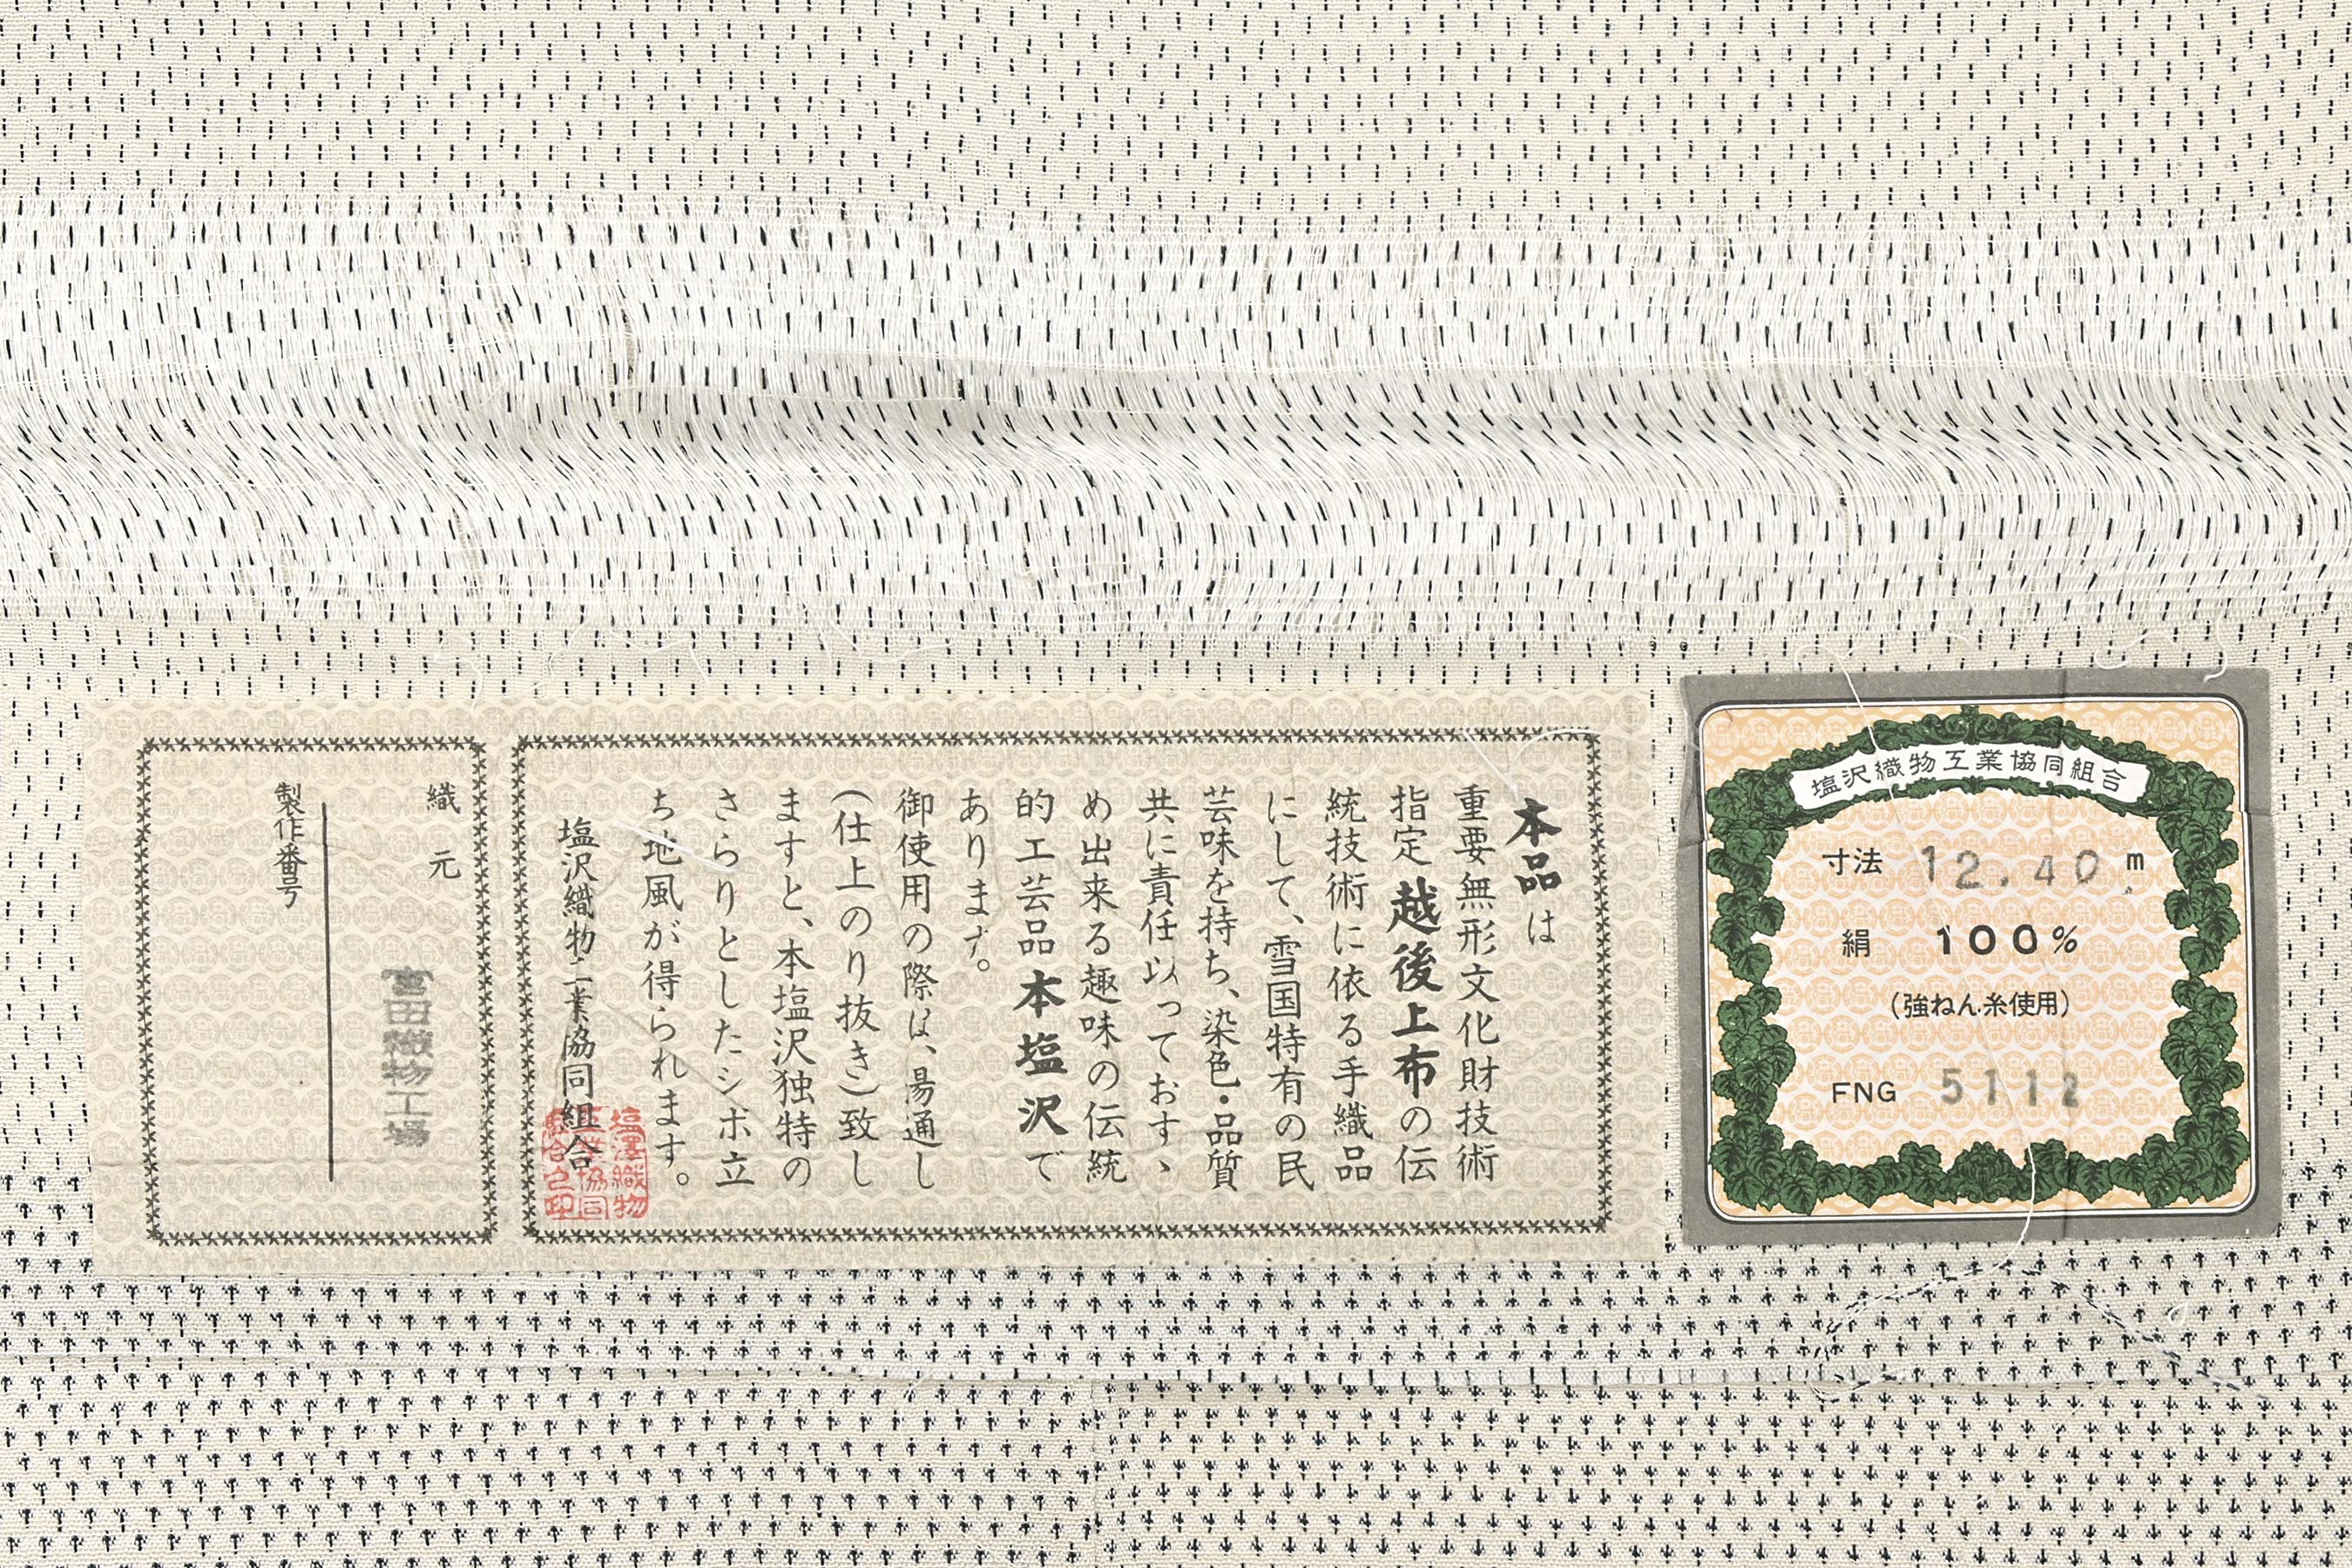 本品は
重要無形文化財技術
指定越後上布の伝
統技術に依る手織品
にして、雪国特有の民
芸味を持ち、染色・品質
共に責任以っておすゝ
め出来る趣味の伝統
的工芸品本塩沢で
あります。
御使用の際は、湯通し
(仕上のり抜き)致し
ますと、本塩沢独特の
さらりとしたシボ立
ち地風が得られます。
塩沢織物工業協同組合
塩澤織物
工業協同
組合之印
織元
宮田織物工場
製作番号
塩沢織物工業協同組合
寸法 12.40 m
絹 100%
(強ねん糸使用)
FNG 5112